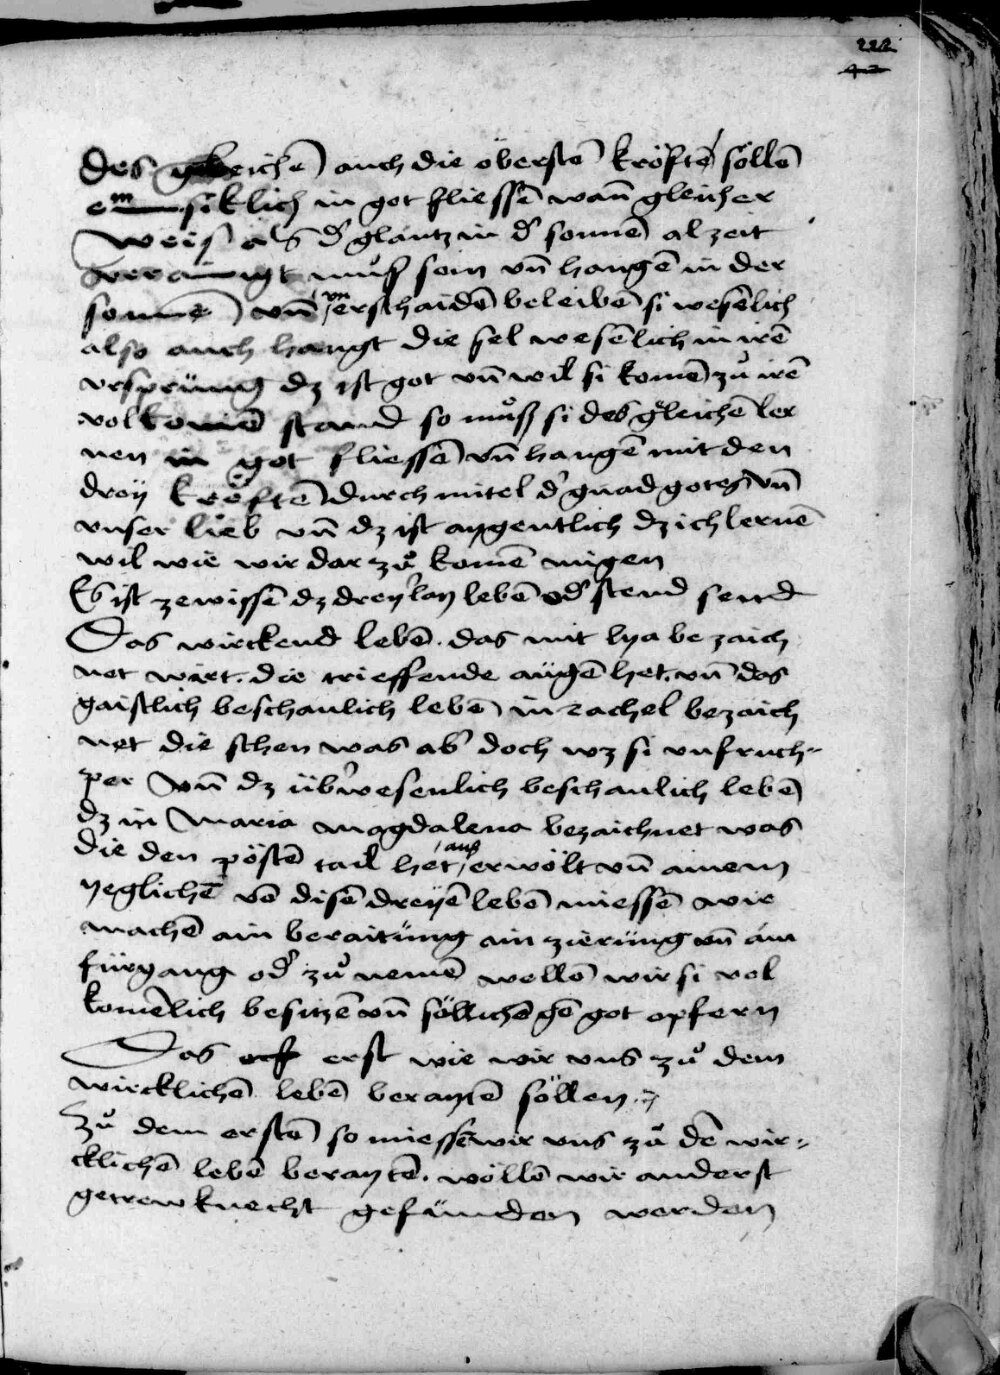 222
des gleichen auch die öbersten kröften söllen
emsiklich in got fliessen wañ gleicher
weis als d' glantz in d' sonnen al zeit
verainigt můß sein vñ hangen in der
sonne vñ vnerschaiden beleiben si wesenlich
also auch hangt die sel wesenlich in irē
vrsprüng dz ist got vñ wil si komē zů irē
volkomen stand so můß si des gleichen ler
nen in got fliessen vñ hangen mit den
dreÿ kröften durch mitel d' gnad gotes vñ
vnser lieb vñ dz ist aygentlich dz ich lernē
wil wie wir dar zů komē migen
Es ist zewissē dz dreÿ'lay leben od' stend send
Das wirckend lebē. das mit lya be zaich
net wirt. die trieffende aügē het. vñ das
gaistlich beschaulich lebē in rachel bezaich
net die schen was ab' doch wz si vnfruch-
per vñ dz üb'wesenlich beschaulich lebē
dz in Maria magdalena bezaichnet was
die den pöstē tail het auß erwölt vñ ainem
yeglichē vō disen dreÿē lebē miessē wir
machē ain beraitüng ain zierüng vñ ain
fürgang od' zů nemē wellē wir si vol
komēlich besitzē vñ söllichē gē got opfern
Das erst wie wir vns zů dem
wircklichē lebē beraytē söllen
Zů dem erstē so miessē wir vns zů dē wir-
cklichē lebē beraytē. wöllē wir anderst
getrew knecht gefünden werden